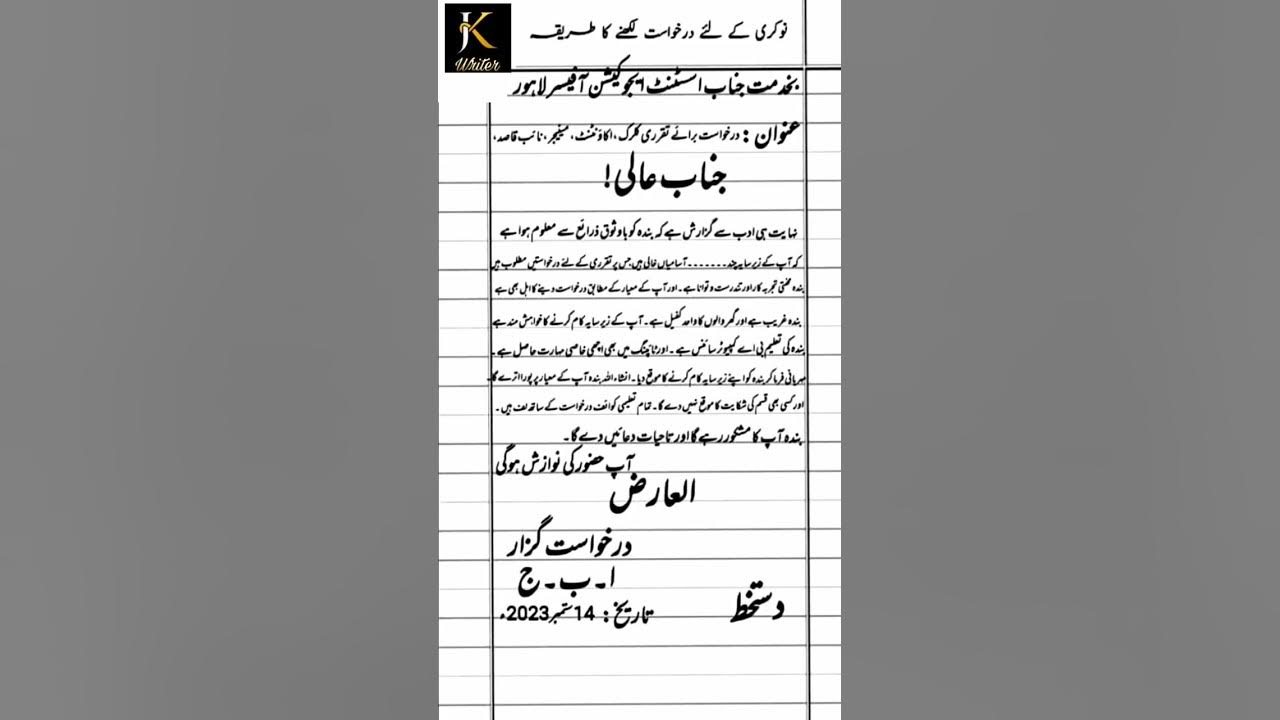 JK
Writer
نوکری کے لئے درخواست لکھنے کا طریقہ
بخدمت جناب اسسٹنٹ ایجوکیشن آفیسر لاہور
عنوان : درخواست برائے تقرری کلرک ،اکاؤنٹنٹ، مینیجر ،نائب قاصد،
جناب عالی!
نہایت ہی ادب سے گزارش ہے کہ بندہ کو باوثوق ذرائع سے معلوم ہوا ہے
کہ آپ کے زیر سایہ چند۔۔۔۔۔۔۔آسامیاں خالی ہیں جس پر تقرری کے لئے درخواستیں مطلوب ہیں
بندہ محنتی تجربہ کار اور تندرست و توانا ہے۔ اور آپ کے معیار کے مطابق درخواست دینے کا اہل بھی ہے
بندہ غریب ہے اور گھر والوں کا واحد کفیل ہے ۔ آپ کے زیر سایہ کام کرنے کا خواہش مند ہے
بندہ کی تعلیم بی اے کمپیوٹر سائنس ہے ۔ اور ٹائپنگ میں بھی اچھی خاصی مہارت حاصل ہے ۔
مہربانی فرما کر بندہ کو اپنے زیر سایہ کام کرنے کا موقع دیا۔ انشاءاللہ بندہ آپ کے معیار پر پورا اترے گا۔
اور کسی بھی قسم کی شکایت کا موقع نہیں دے گا۔ تمام تعلیمی کوائف درخواست کے ساتھ لف ہیں ۔
بندہ آپ کا مشکور رہے گا اور تاحیات دعائیں دے گا ۔
آپ حضور کی نوازش ہوگی
العارض
درخواست گزار
ا۔ ب۔ ج
دستخط
تاریخ : 14 ستمبر 2023ء